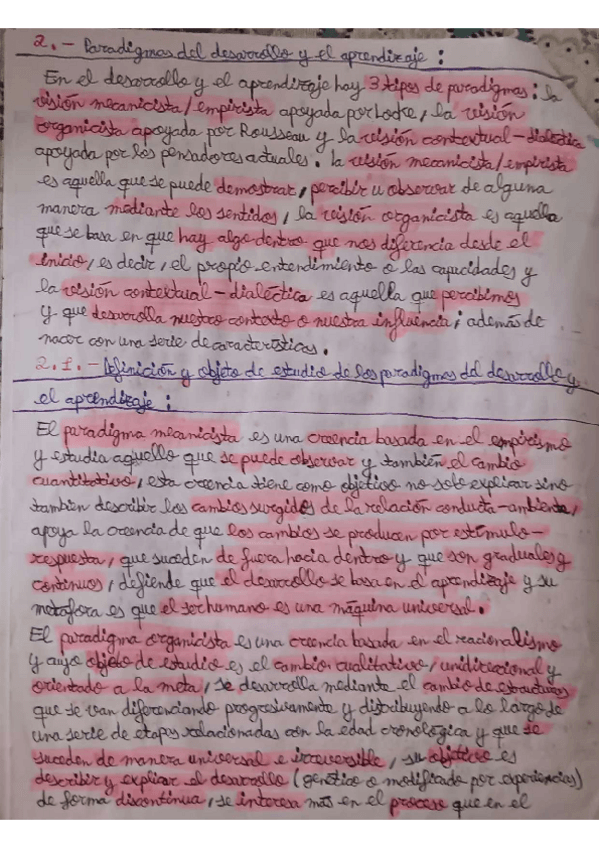 2.- Paradigmas del desarrollo y el aprendizaje:
En el desarrollo y el aprendizaje hay 3 tipos de paradigmas: la
visión mecanicista/empirista apoyada por Locke, la visión
organicista apoyada por Rousseau y la visión contextual-dialéctica
apoyada por los pensadores actuales. la visión mecanicista/empirista
es aquella que se puede demostrar, percibir u observar de alguna
manera mediante los sentidos, la visión organicista es aquella
que se basa en que hay algo dentro que nos diferencia desde el
inicio, es decir, el propio entendimiento o las capacidades y
la visión contextual-dialéctica es aquella que percibimos
y que desarrolla nuestro contexto o nuestra influencia; además de
nacer con una serie de características.
2.1.- Definición y objeto de estudio de los paradigmas del desarrollo y
el aprendizaje:
El paradigma mecanicista es una creencia basada en el empirismo
y estudia aquello que se puede observar y también el cambio
cuantitativo, esta creencia tiene como objetivo no solo explicar sino
también describir los cambios surgidos de la relación conducta-ambiente,
apoya la creencia de que los cambios se producen por estímulo-
respuesta, que suceden de fuera hacia dentro y que son graduales y
continuos, defiende que el desarrollo se basa en el aprendizaje y su
metáfora es que el ser humano es una máquina universal.
El paradigma organicista es una creencia basada en el racionalismo
y cuyo objeto de estudio es el cambio cualitativo, unidireccional y
orientado a la meta, se desarrolla mediante el cambio de estructuras
que se van diferenciando progresivamente y distribuyendo a lo largo de
una serie de etapas relacionadas con la edad cronológica y que se
suceden de manera universal e irreversible, su objetivo es
describir y explicar el desarrollo (genético o modificado por experiencias)
de forma discontinua, se interesa más en el proceso que en el